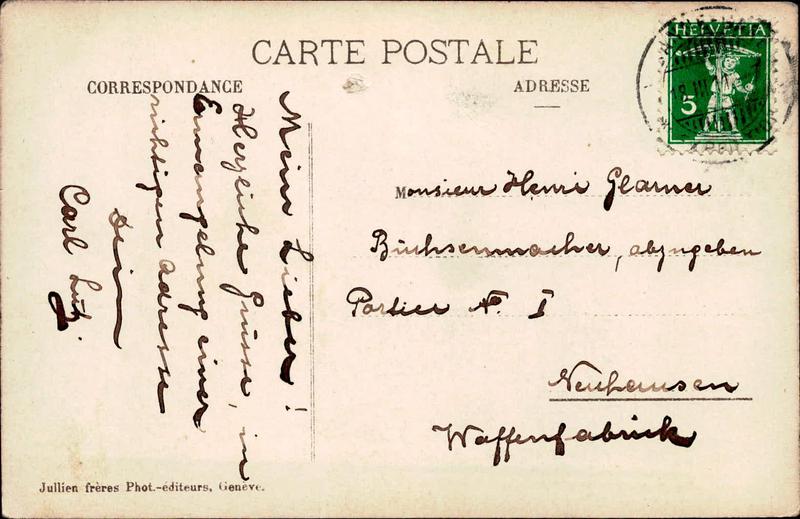 CARTE POSTALE
CORRESPONDANCE
ADRESSE
HELVETIA
5
18.III.1
Mein Lieber!
Herzliche Grüsse, in
Ermangelung einer
richtigen Adresse
Dein
Carl Lutz.
Monsieur Henri Glarner
Büchsenmacher, abzugeben
Portier No. I
Neuhausen
Waffenfabrick
Jullien frères Phot.-éditeurs, Genève.